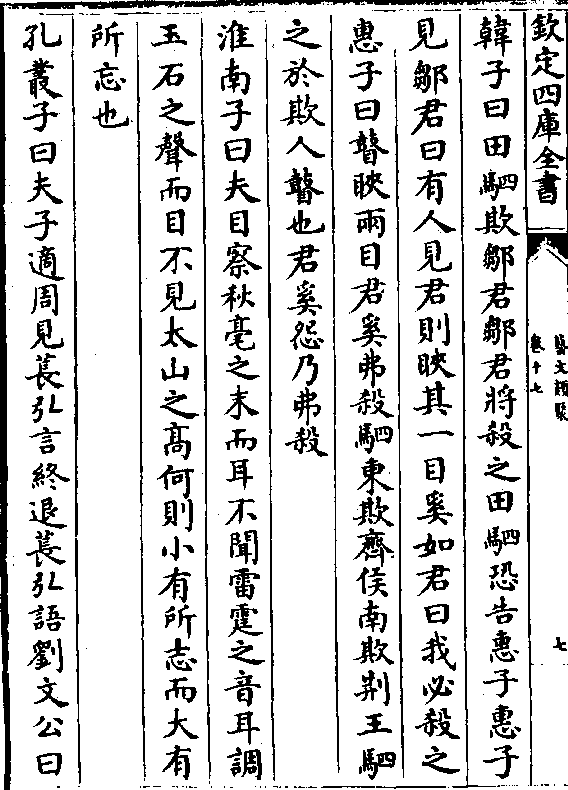 欽定四庫全書
藝文類聚
卷十七
七
韓子曰田駟欺鄒君鄒君將殺之田駟恐告惠子惠子
見鄒君曰有人見君則䀹其一目奚如君曰我必殺之
惠子曰瞽䀹兩目君奚弗殺駟東欺齊侯南欺荆王駟
之於欺人瞽也君奚怨乃弗殺
淮南子曰夫目察秋毫之末而耳不聞雷霆之音耳調
玉石之聲而目不見太山之髙何則小有所志而大有
所忘也
孔叢子曰夫子適周見萇弘言終退萇弘語劉文公曰